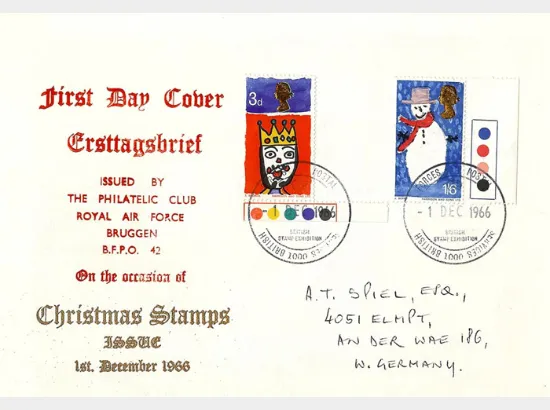 First Day Cover
Ersttagsbrief
ISSUED BY
THE PHILATELIC CLUB
ROYAL AIR FORCE
BRUGGEN
B.F.P.O. 42
On the occasion of
Christmas Stamps
ISSUE
1st. December 1966
3d
1/6
FORCES POSTAL
- 1 DEC 1966
BRITISH
STAMP EXHIBITION
SERVICES 1000 BRITISH
FORCES POSTAL
- 1 DEC 1966
BRITISH
STAMP EXHIBITION
SERVICES 1000 BRITISH
A.T. SPIEL, ESQ.,
4051 ELMPT,
AN DER WAE 186,
W. GERMANY.